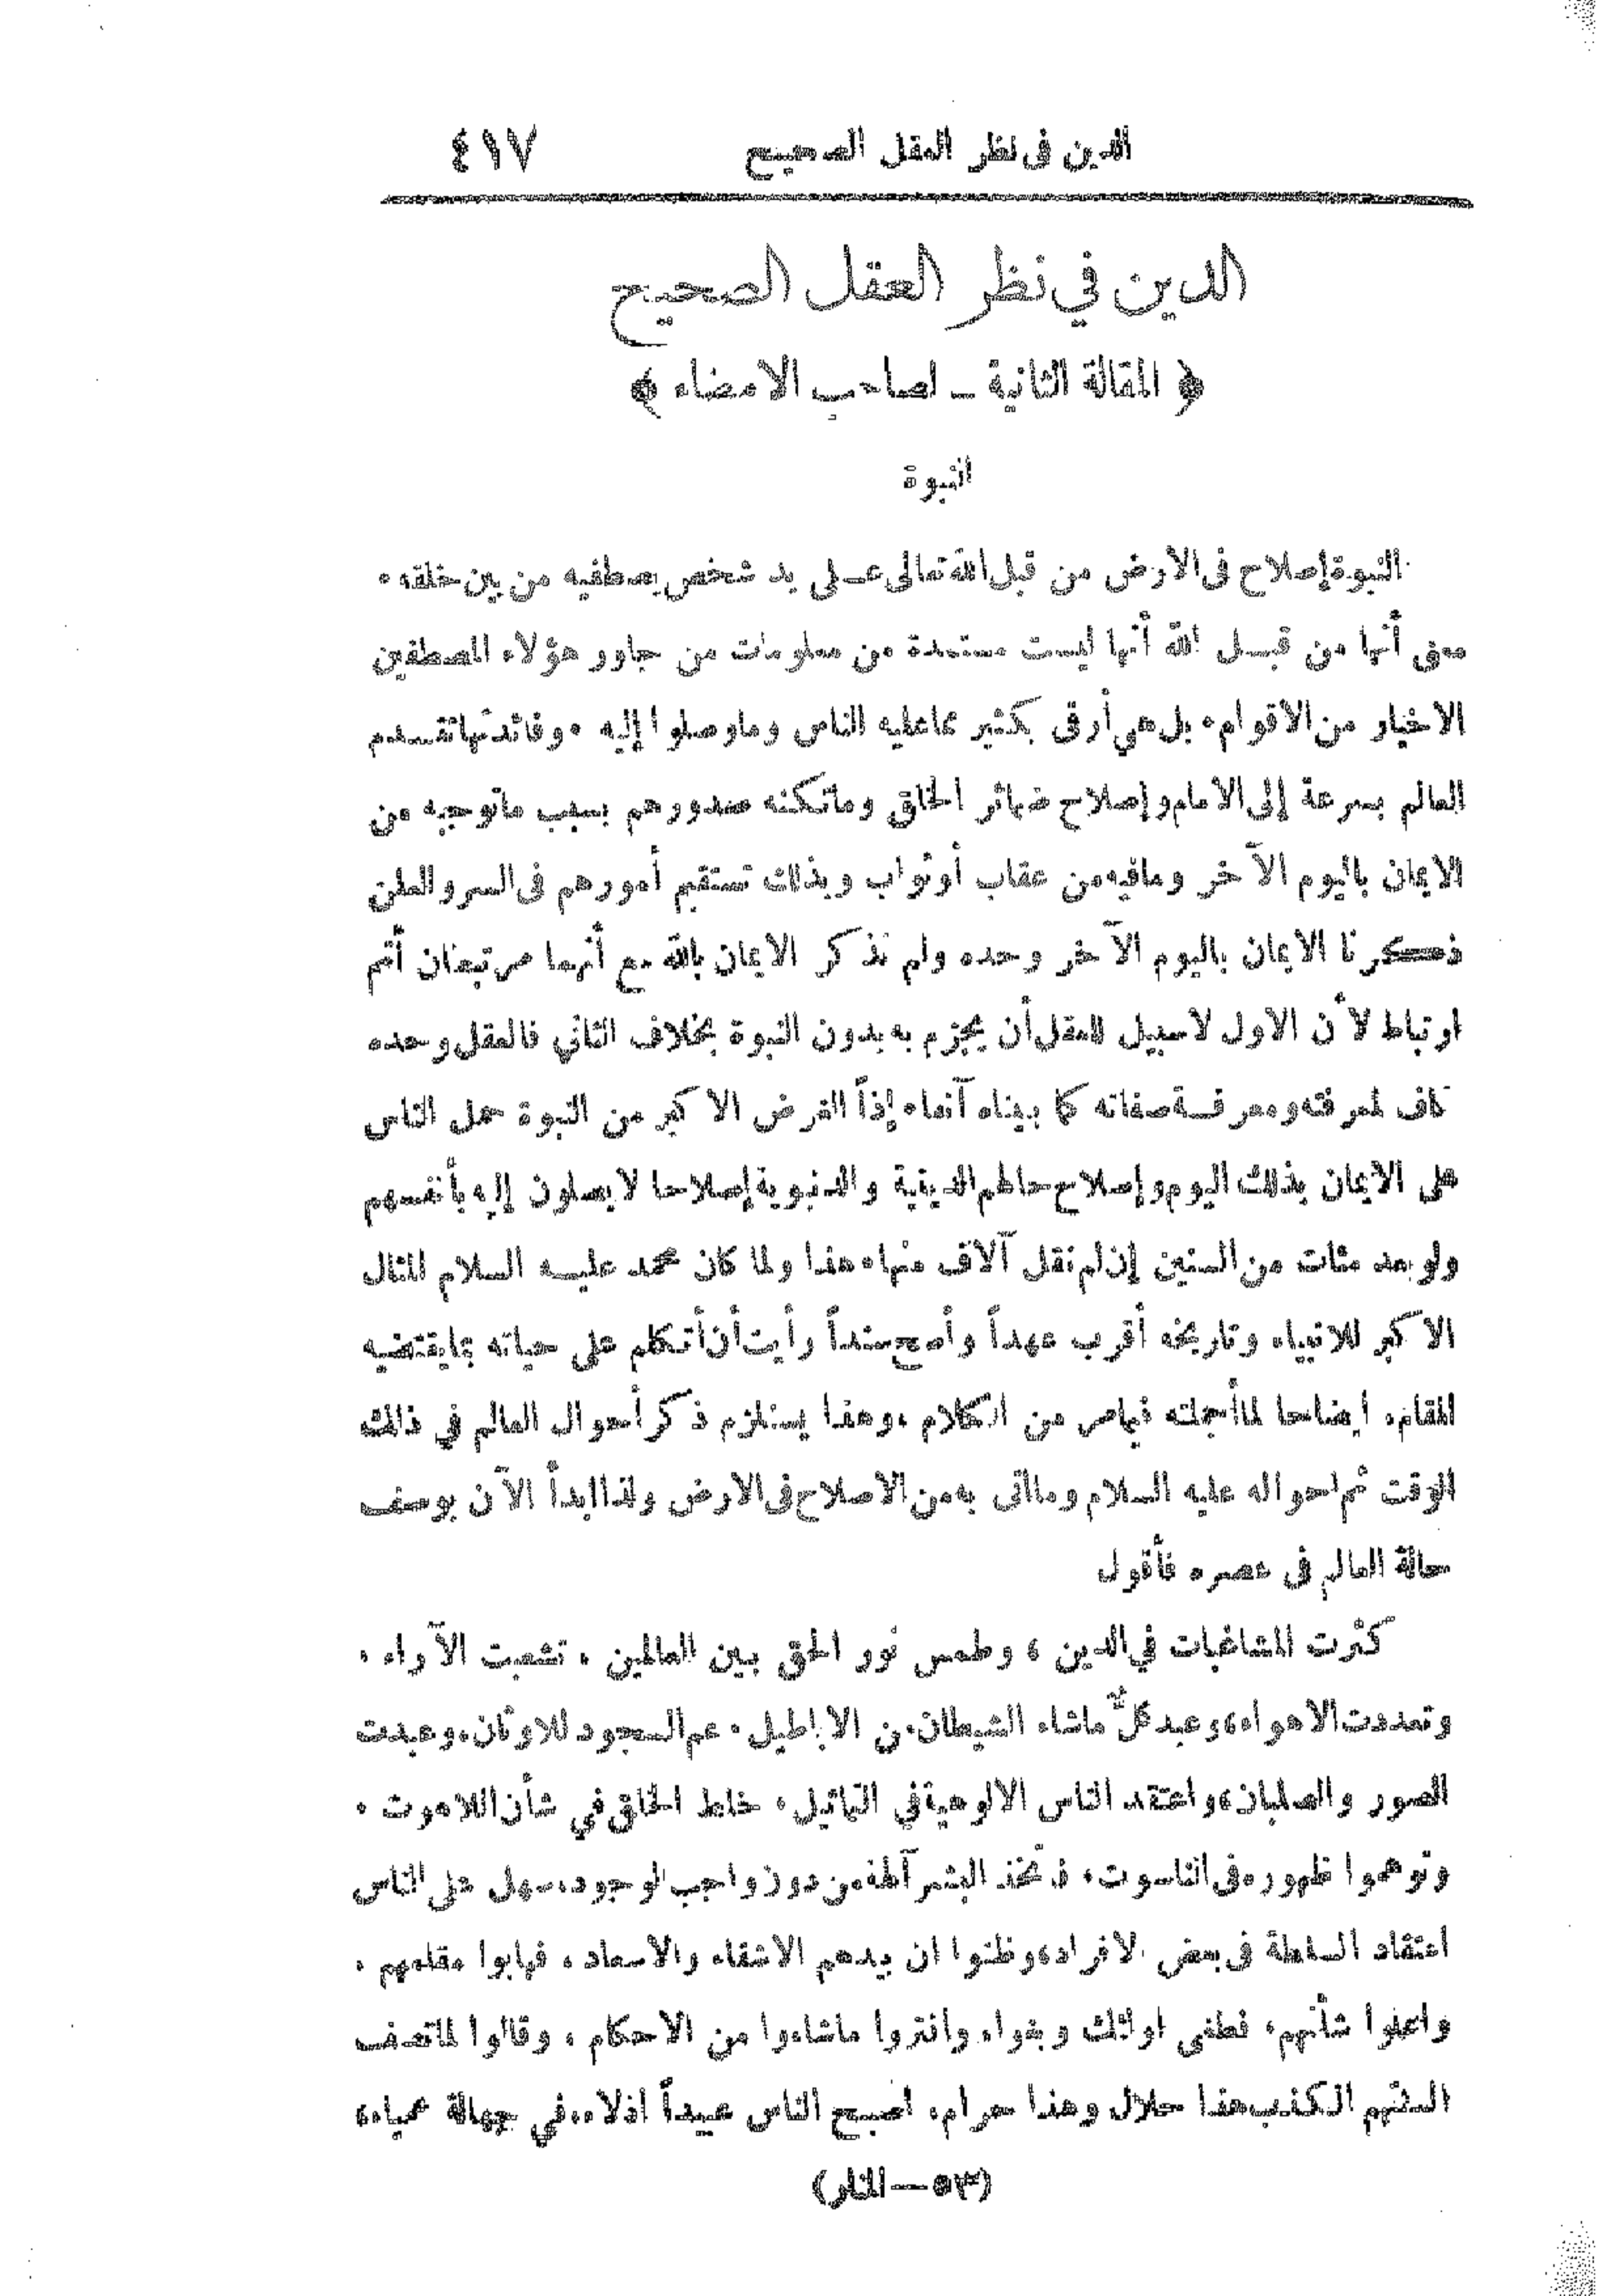 الدين فى نظر العقل الصحيح ٤١٧
الدين في نظر العقل الصحيح
﴿ المقالة الثانية ـ لصاحب الامضاء ﴾
النبوة
النبوة إصلاح فى الارض من قبل الله تعالى عـلى يد شخص يصطفيه من بين خلقه .
معنى أنها من قبـل الله أنها ليست مستمدة من معلومات من جاور هؤلاء المصطفين
الاخيار من الاقوام . بل هي أرقى بكثير مما عليه الناس وما وصلوا إليه . وفائدتها تقـدم
العالم بسرعة إلى الامام وإصلاح ضمائر الخلق وما تكنه صدورهم بسبب ما توجبه من
الايمان باليوم الآخر وما فيه من عقاب أو ثواب وبذلك تستقيم أمورهم فى السر والعلن
ذكرنا الايمان باليوم الآخر وحده ولم نذكر الايمان بالله مع أنهما مرتبطان أتم
ارتباط لأن الاول لا سبيل للعقل أن يجزم به بدون النبوة بخلاف الثاني فالعقل وحده
كاف لمعرفته ومعرفـة صفاته كما بيناه آنفا . إذاً الغرض الاكبر من النبوة حمل الناس
على الايمان بذلك اليوم وإصلاح حالهم الدينية والدنيوية إصلاحا لا يصلون إليه بأنفسهم
ولو بعد مئات من السنين إن لم نقل آلاف منها . هذا ولما كان محمد عليـه السلام المثال
الاكبر للانبياء وتاريخه أقرب عهداً وأصح سنداً رأيت أن أتكلم على حياته بما يقتضيه
المقام . ايضاحا لما أجملته فيما مر من الكلام . وهذا يستلزم ذكر أحوال العالم في ذلك
الوقت ثم احواله عليه السلام وما اتى به من الاصلاح فى الارض ولذا ابدأ الآن بوصف
حالة العالم فى عصره فأقول
كثرت المشاغبات في الدين ، وطمس نور الحق بين العالمين . تشعبت الآراء .
وتعددت الاهواء ، وعبد كلٌّ ما شاء الشيطان من الاباطيل . عم السجود للاوثان ، وعبدت
الصور والصلبان ، واعتقد الناس الالوهية في التماثيل . خلط الخلق في شأن اللاهوت .
وتوهموا ظهوره فى الناسوت ، فاتخذ البشر آلهة من دون واجب الوجود . سهل على الناس
اعتقاد السلطة فى بعض الافراد ، وظنوا ان بيدهم الاشقاء والاسعاد ، فهابوا مقامهم .
واعلوا شأنهم ، فطغى اولئك وبغوا ، وافتروا ما شاءوا من الاحكام ، وقالوا لما تصف
السنتهم الكذب هذا حلال وهذا حرام . اصبح الناس عبيداً اذلاء ، في جهالة عمياء ،
(٥٣ — المنار)